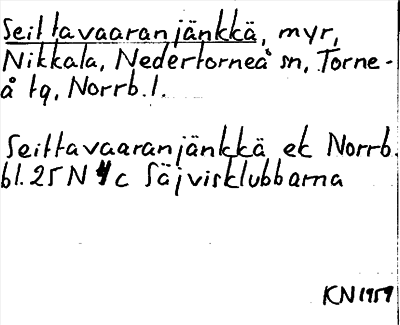 Seittavaaranjänkkä, myr,
Nikkala, Nedertorneå sn, Torne-
å tg, Norrb. l.
Seittavaaranjänkkä ek Norrb.
bl. 25 N 4 c Säjvisklubbarna
KN 1959